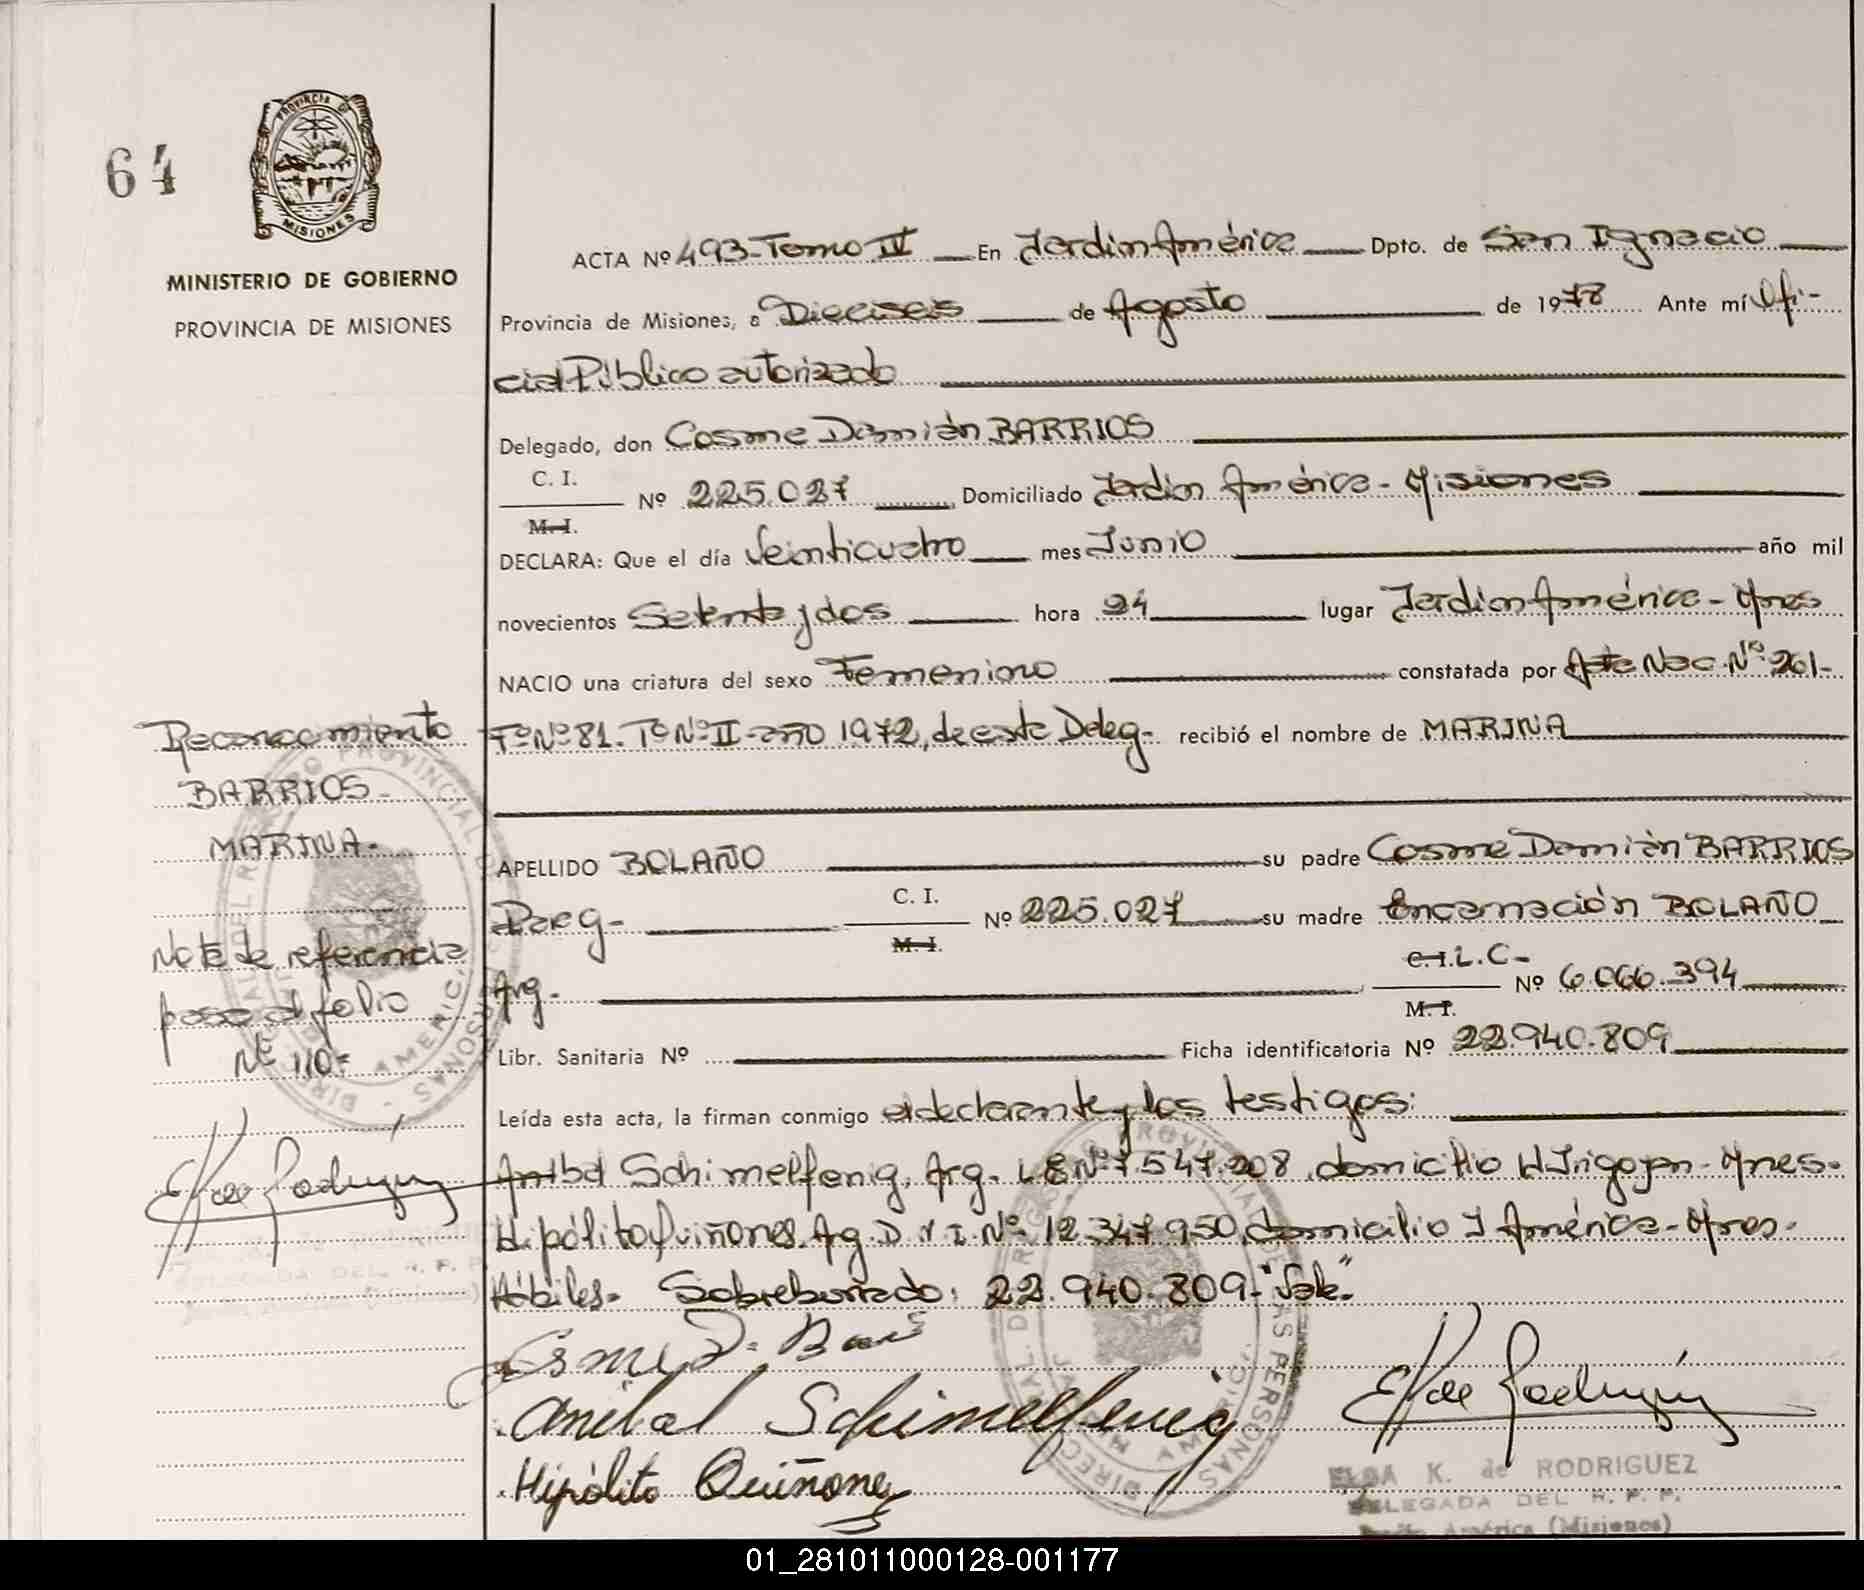 64
PROVINCIA DE
MISIONES
MINISTERIO DE GOBIERNO
PROVINCIA DE MISIONES
ACTA Nº 493-Tomo IV En Jardin América Dpto. de San Ignacio
Provincia de Misiones, a Dieciseis de Agosto de 1978 Ante mí Ofi-
cial Público autorizado
Delegado, don Cosme Damián BARRIOS
C. I.
M. I. Nº 225.027 Domiciliado Jardin América - Misiones
DECLARA: Que el día Veinticuatro mes Junio año mil
novecientos Setenta y dos hora 24 lugar Jardin América - Mnes
NACIO una criatura del sexo Femenino constatada por Acta Nac. Nº 261-
Fº Nº 81. Tº Nº II - año 1972, de esta Deleg- recibió el nombre de MARINA
APELLIDO BOLAÑO su padre Cosme Damián BARRIOS
Parg- C. I.
M. I. Nº 225.027 su madre Encarnación BOLAÑO
Arg. C.I. L.C-
M. I. Nº 6.066.394
Libr. Sanitaria Nº Ficha identificatoria Nº 22.940.809
Leída esta acta, la firman conmigo el declarante y los testigos:
Anibal Schimelfenig, Arg. L E Nº 7.547.208, domicilio H Irigoyen - Mnes.
Hipólito Quiñones, Arg. D N I. Nº 12.347.950, domicilio J América - Mnes.
Hábiles. Sobreborrado: 22.940.809- "Vale"
Anibal Schimelfenig
Hipólito Quiñones
ELSA K. de RODRIGUEZ
DELEGADA DEL R. P. P.
Jardín América (Misiones)
Reconocimiento
BARRIOS
MARINA.
Nota de referencia
pasa al folio
Nº 110=
DELEGADA DEL R. P. P.
01_281011000128-001177